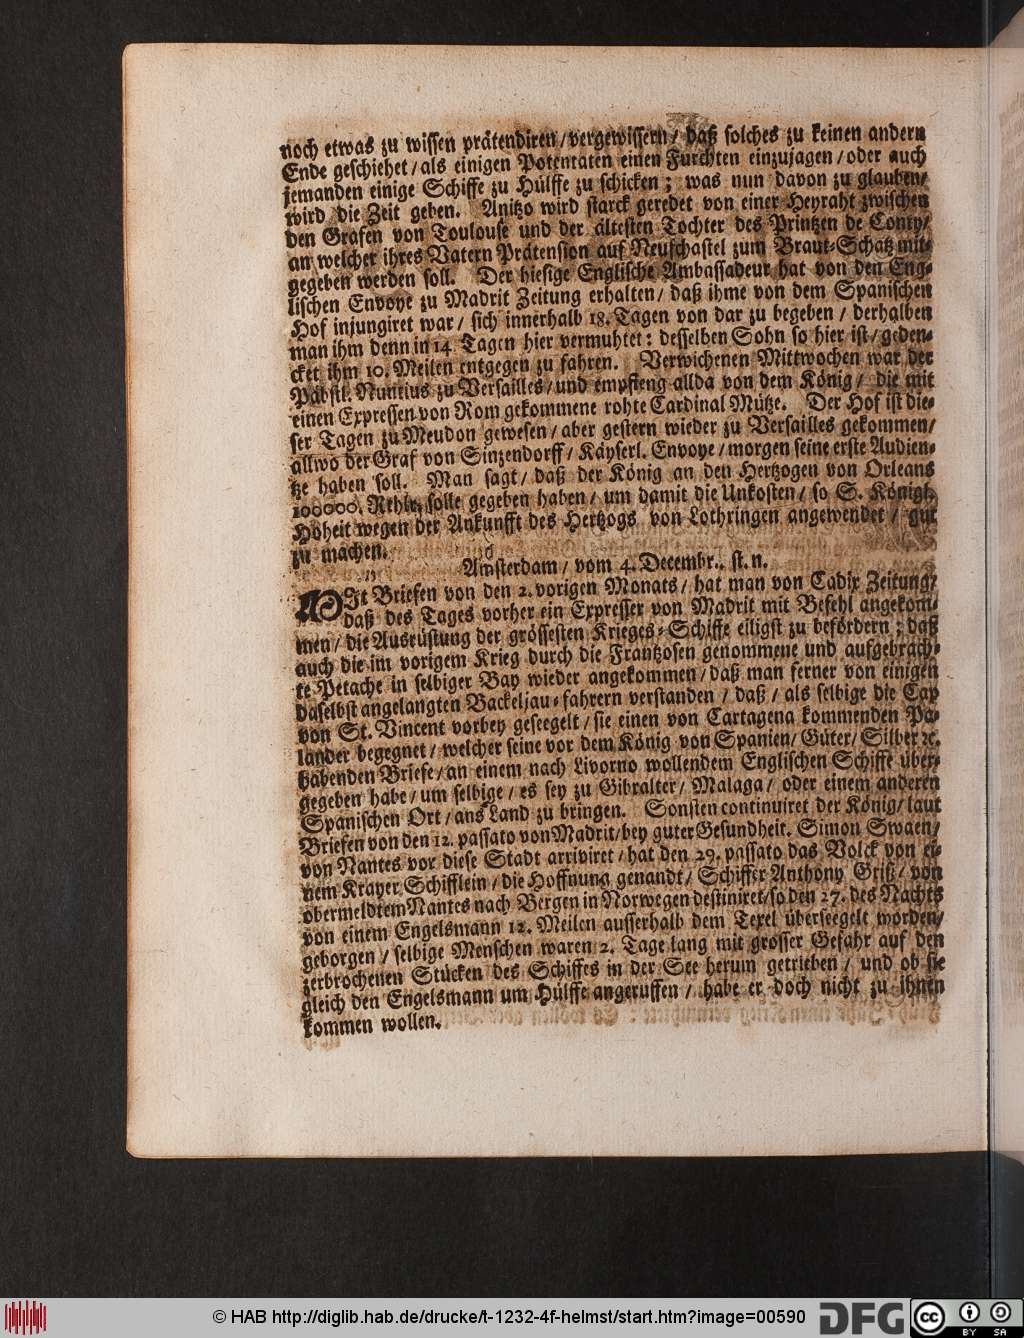 noch etwas zu wissen prätendiren / vergewissern / daß solches zu keinen andern
Ende geschiehet / als einigen Potentaten einen Furchten einzujagen / oder auch
jemanden einige Schiffe zu Hülffe zu schicken ; was nun davon zu glauben /
wird die Zeit geben. Anitzo wird starck geredet von einer Heyraht zwischen
den Grafen von Toulouse und der ältesten Tochter des Printzen de Conty /
an welcher ihres Vatern Prätension auf Neufchastel zum Braut-Schatz mit-
gegeben werden soll. Der hiesige Englische Ambassadeur hat von den Eng-
lischen Envoye zu Madrit Zeitung erhalten / daß ihme von dem Spanischen
Hof injungiret war / sich innerhalb 18. Tagen von dar zu begeben / derhalben
man ihm denn in 14. Tagen hier vermuhtet : desselben Sohn so hier ist / geden-
cket ihm 10. Meilen entgegen zu fahren. Verwichenen Mittwochen war der
Päbstl. Nuntius zu Versailles / und empfieng allda von dem König / die mit
einen Expressen von Rom gekommene rohte Cardinal Mütze. Der Hof ist die-
ser Tagen zu Meudon gewesen / aber gestern wieder zu Versailles gekommen /
allwo der Graf von Sinzendorff / Käyserl. Envoye / morgen seine erste Audien-
tze haben soll. Man sagt / daß der König an den Hertzogen von Orleans
100000. Rthlr. solle gegeben haben / um damit die Unkosten / so S. Königl.
Hoheit wegen der Ankunfft des Hertzogs von Lothringen angewendet / gut
zu machen.
Amsterdam / vom 4. Decembr.. st. n.
MIt Briefen von den 2. vorigen Monats / hat man von Cadix Zeitung /
daß des Tages vorher ein Expresser von Madrit mit Befehl angekom-
men / die Ausrüstung der grössesten Krieges-Schiffe eiligst zu befördern ; daß
auch die im vorigem Krieg durch die Frantzosen genommene und aufgebrach-
te Petache in selbiger Bay wieder angekommen / daß man ferner von einigen
daselbst angelangten Backeljau-fahrern verstanden / daß / als selbige die Cap
von St. Vincent vorbey geseegelt / sie einen von Cartagena kommenden Pa-
lander begegnet / welcher seine vor dem König von Spanien / Güter / Silber ꝛc.
habenden Briefe / an einem nach Livorno wollendem Englischen Schiffe über-
gegeben habe / um selbige / es sey zu Gibralter / Malaga / oder einem anderen
Spanischen Ort / ans Land zu bringen. Sonsten continuiret der König / laut
Briefen von den 12. passato von Madrit / bey guter Gesundheit. Simon Swaen /
von Nantes vor diese Stadt arriviret / hat den 29. passato das Volck von ei-
nem Krayer Schifflein / die Hoffnung genandt / Schiffer Anthony Griß / von
obermeldtem Nantes nach Bergen in Norwegen destiniret / so den 27. des Nachts
von einem Engelsmann 12. Meilen ausserhalb dem Texel überseegelt worden /
geborgen / selbige Menschen waren 2. Tage lang mit grosser Gefahr auf den
zerbrochenen Stücken des Schiffes in der See herum getrieben / und ob sie
gleich den Engelsmann um Hülffe angeruffen / habe er doch nicht zu ihnen
kommen wollen.
© HAB http://diglib.hab.de/drucke/t-1232-4f-helmst/start.htm?image=00590 DFG cc BY SA